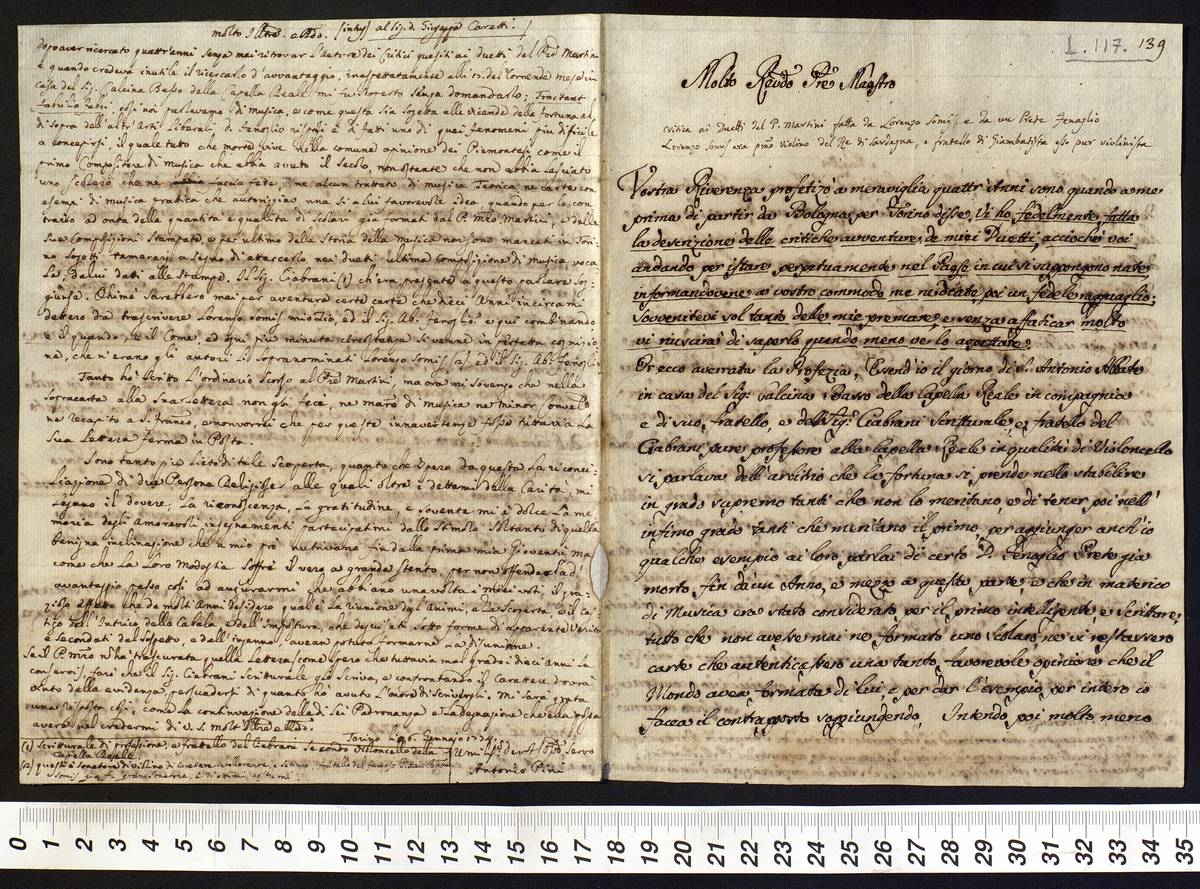 molto Illre. e Rdo. (intus) al Sig. d. Giuseppe Caretti.
dopo aver ricercato quattr'anni senza mai ritrovar l'autore dei Critici quesiti ai Duetti del Pre Martini
e quando credeva inutile il ricercarlo d'avvantaggio, inaspettatamente alli 17. del Corrente mese in
casa del Sig. Galcina Basso della Capella Reale mi fu scoperto senza domandarlo; Tractant
Fabrilia Fabri, così noi parlavamo di musica, e come questa sia sogetta alle vicende della fortuna al
di sopra dell'altr'Arti Liberali, d. Fenoglio rispose è di fatti uno di quei fenomeni più difficile
a concepirsi, il quale tutto che morto vive nella comune opinione dei Piemontesi come il
primo Compositore di Musica che abbia avuto il secolo, nonostante che non abbia lasciato
uno scolaro che ne faccia fede, ne alcun trattato di musica Teorica, ne carte con
esempi di musica pratica che autorizino una sì a lui favorevole idea, quando per lo con
trario ad onta della quantità e qualità di Scolari già formati dal P. Mro Martini, e dalle
sue Composizioni Stampate, e per ultimo della Storia della Musica non sono mancati in Tori
no Sogetti temerarj a segno di attaccarlo nei duetti ultima Composizione di Musica voca
le da lui dati alle Stampe. Il Sig. Ciabrani (1) ch'era presente a questo parlare sog
giunse. Ohimè sarebbero mai per aventura certe carte che dieci Anni in circa mi
debero da trascrivere Lorenzo Somis mio Zio, ed il Sig. Ab. Fenoglio? e qui combinando
e il quando, e il Come, ed ogni più minuta circostanza si venne in perfetta cognizio
ne, che n'erano gli autori li sopranominati Lorenzo Somis (2) ed il Sig. Ab. Fenoglio
Tanto hò scritto l'ordinario scorso al Pre Martini, ma ora mi sovengo che nella
sopracarta alla sua lettera non gli fece, ne maro di musica ne minor Convle
ne recapito a S. Franco, e non vorrei che per queste innavertenze fosse tuttavia la
sua Lettera ferma in Posta.
Sono tanto più lieto di tale scoperta, quanto che spero da questa la riconci
liazione di due Persone Religiose alle quali oltre i dettami della Carità, mi
legano il dovere, la riconoscenza, la gratitudine, e sovente mi è dolce la me
moria degli Amorevoli insegnamenti partecipatimi dallo Stimolo soltanto di quella
benigna inclinazione che a mio prò nutrivano fin dalla prima mia Gioventù ma
come che la loro Modestia soffre il vero a grande stento, per non offenderla d'
avantaggio passo così ad augurarmi che abbiano una volta i miei voti il gra
zioso effetto che da molti Anni desidero qual è la riunione degl'animi, e la scoperta e il cas
tigo dell'Intrico, della Cabala, e dell'Impostura, che sotto forme di apparente Verità
e secondati del sospetto, e dell'inganno, avean potuto formarne la disunione.
Se il P. mro non hà trascurata quella Lettera, come spero che tuttavia mal grado i dieci anni la
conservi, farò che il Sig. Ciabrani Scritturale gli scriva, e confrontando il carattere dovrà
vinto dalla evidenza, persuadersi di quanto hò avuto l'onor di scrivergli. Mi sarà grata
una risposta così, come la continuazione della di lei Padronanza e la degnazione che ella possa
avere nel credermi di V. S. molt'Illre e Rdo.
Torino li 26. Gennajo 1774.
(1) Scritturale di professione, e fratello del Ciabrani secondo violoncello della
Capella Reale.
Umilis. devot. obbto Servo
Antonio Pini
1.117. 139
Molto Revdo Pre Maestro
Critica ai Duetti del P. Martini fatta da Lorenzo Somis e da un Prete Fenaglio
Lorenzo Somis era pmo violino del Re di Sardegna, e fratello di Giambatista pur violinista
Vostra Riverenza profetizò a meraviglia quattr'Anni sono quando a me
prima di partir da Bologna per Torino disse. Vi ho fedelmente fatta
la descrizione delle critiche avventure de miei Duetti, acciochè voi
andando per istare perpetuamente nel Paese in cui si suppongono nate,
informandovene a vostro commodo, me ne diate poi un fedele ragguaglio;
Sovvenitevi sol tanto delle mie premure, e senza affaticar molto
vi riuscirà di saperlo quando meno ve lo aspettate.
Or ecco averrata la Profezia, Essend'io il giorno di S. Antonio Abbate
in casa del Sig. Galcina Basso della Capella Reale in compagnia
e di suo fratello, e del Sig. Ciabrani Scritturale, e fratello del
Ciabrani pure professore alla Capella Reale in qualità di Violoncello
si parlava dell'arbitrio che la fortuna si prende nello stabilire
in grado supremo tanti che non lo meritano, e di tener poi nell'
infimo grado tanti che meritano il primo, per aggiunger anch'io
qualche esempio ai loro, parlai di certo D. Fenaglio Prete già
morto fin da un Anno, e mezo a questa parte, e che in materia
di Musica era stato considerato per il primo intelligente, e scrittore;
tutto che non avesse mai ne formato uno Scolaro, ne vi restassero
carte che autenticassero una tanto favorevole opinione che il
Mondo avea formata di lui, e per dar l'esempio per intero io
facea il contrapposto soggiungendo, Intendo poi molto meno